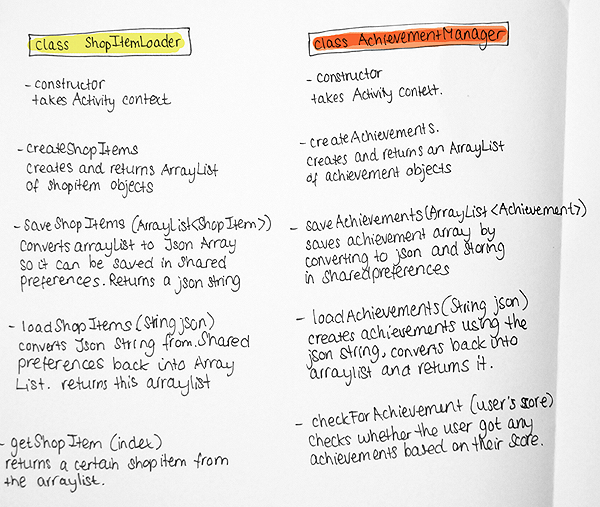 class ShopItemLoader
- constructor
takes Activity context
- createShopItems
creates and returns ArrayList
of shopitem objects
- saveShopItems (ArrayList<ShopItem>)
converts arrayList to Json Array
so it can be saved in shared
preferences. Returns a json string
- loadShopItems (String json)
converts Json String from Shared
preferences back into Array
List. returns this arraylist
- getShopItem (index)
returns a certain shopitem from
the arraylist.
class AchievementManager
- constructor
takes Activity context.
- createAchievements.
creates and returns an ArrayList
of achievement objects
- saveAchievements (ArrayList <Achievement>)
saves achievement array by
converting to json and storing
in sharedpreferences
- loadAchievements (String json)
creates achievements using the
json string, converts back into
arraylist and returns it.
- checkForAchievement (user's score)
checks whether the user got any
achievements based on their score.